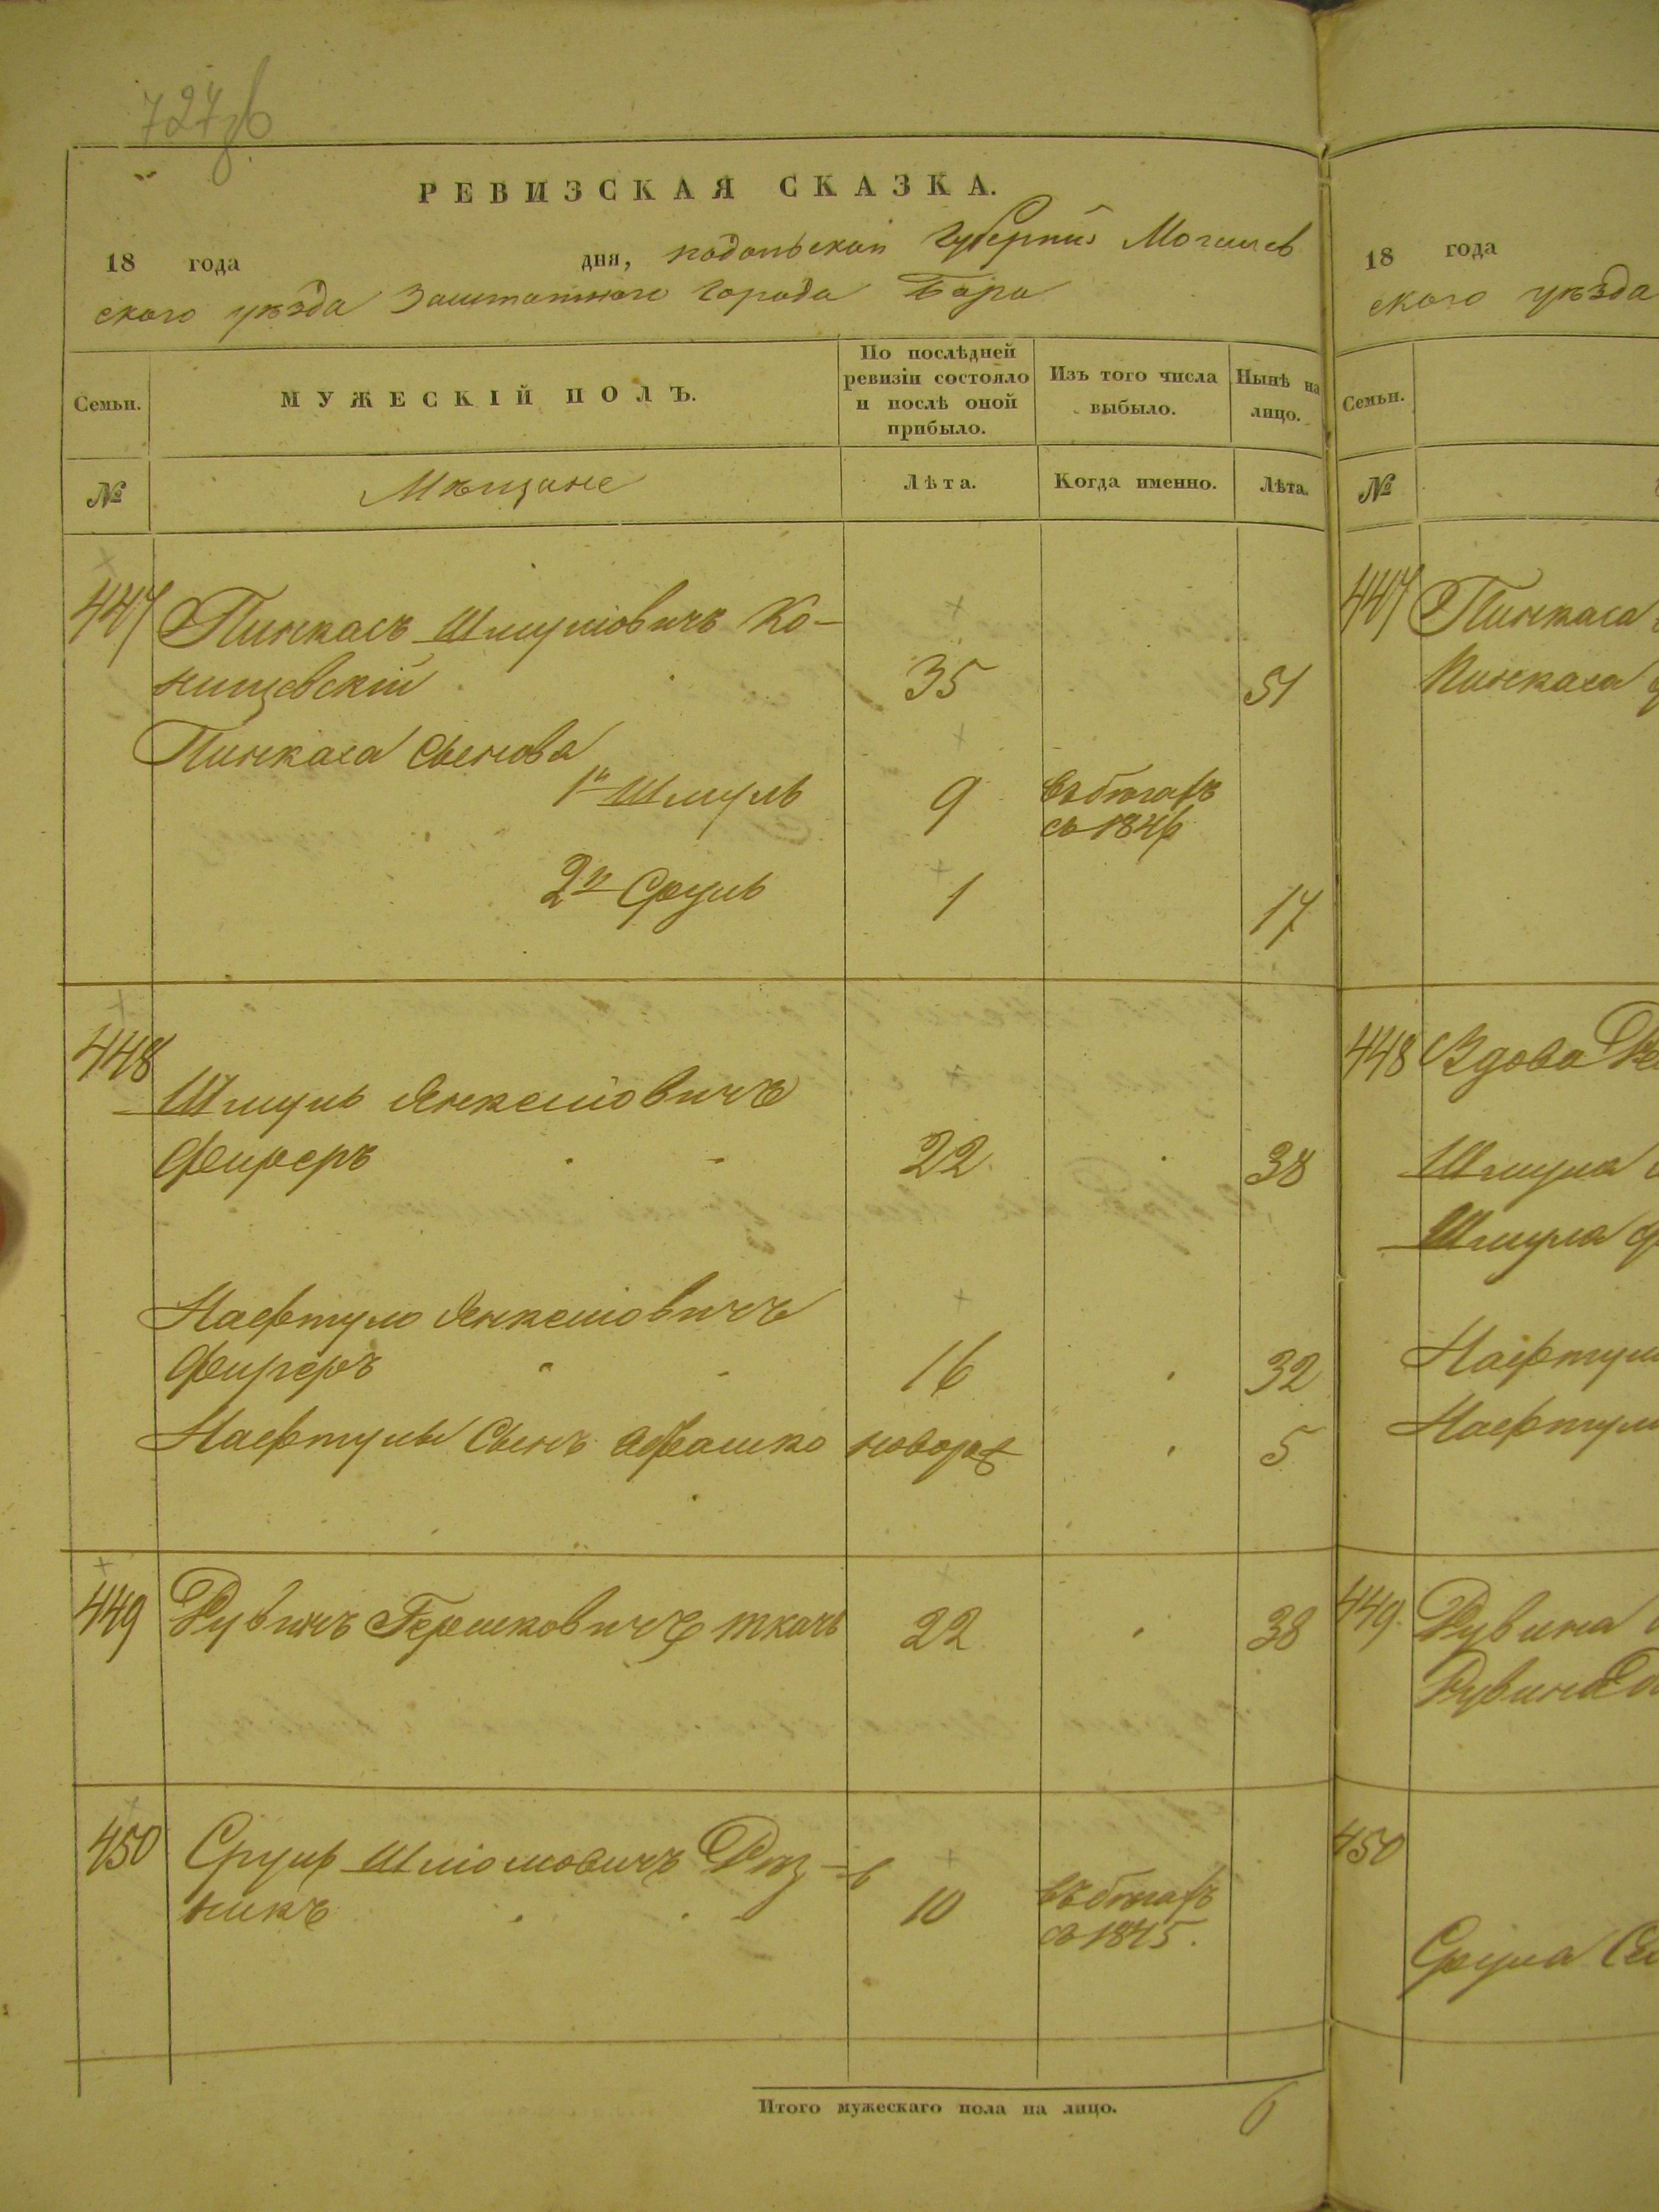 727об
РЕВИЗСКАЯ СКАЗКА.
18 года дня, подольской Губернии Могилев
ского уѣзда Заштатного Города Бара
Семьи.
МУЖЕСКІЙ ПОЛЪ.
По послѣдней ревизіи состояло и послѣ оной прибыло.
Изъ того числа выбыло.
Нынѣ на лицо.
№
Мѣщане
Лѣта.
Когда именно.
Лѣта.
447 Пинкасъ Шмулiовичъ Ко-
нищевскій 35 51
Пинкаса Сынова
1й Шмуль 9 въ бѣгахъ
съ 1846
2й Сруль 1 17
448
Шмуль Янкелiовичъ
Фиреръ 22 38
Нафтуло Янкелiовичъ
Фиреръ 16 32
Нафтулы Сынъ новорож 5
449 Рувинъ Гершковичъ ткачъ 22 38
450 Сруль Шлiомовичъ Рѣз-
никъ 10 въ бѣгахъ
съ 1845.
Итого мужескаго пола на лицо. 6
18 года
ского уѣзда
Семьи.
№
447 Пинкаса
Пинкаса
448 Вдова
Шмуля
Шмуля
Нафтулы
449. Рувина
Рувина
450
Сруля